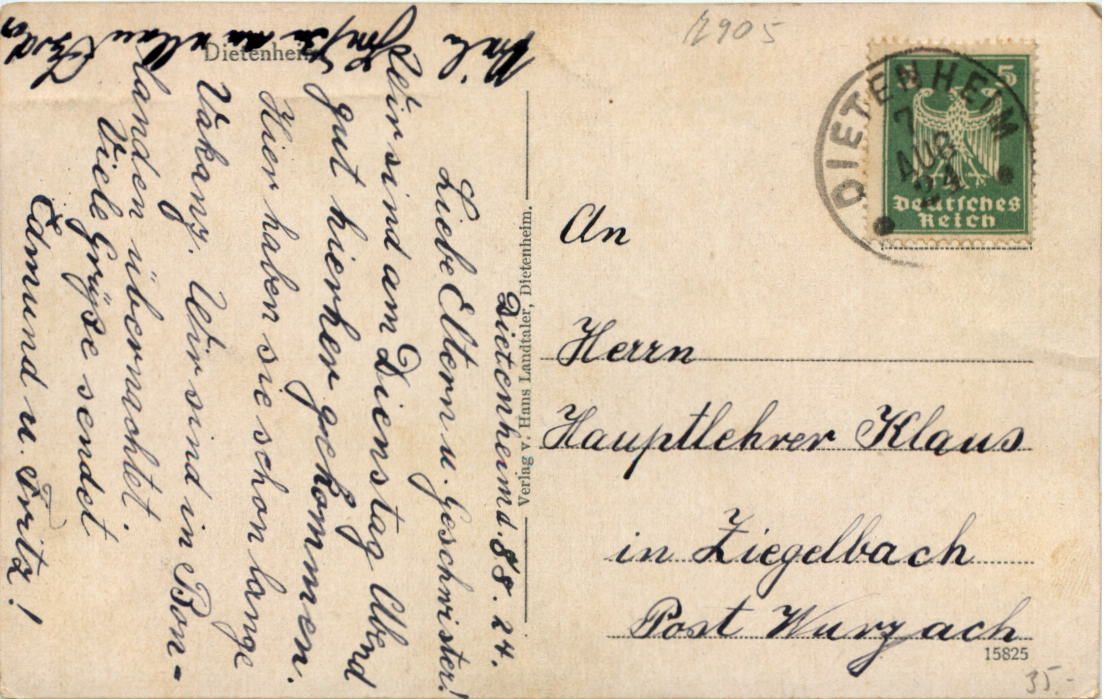 Dietenheim d. 8.8.24.
Liebe Eltern u. Geschwister!
Wir sind am Dienstag Abend
gut hierher gekommen.
Hier haben sie schon lange
Vakanz. Wir sind in Bon-
landen übernachtet.
Viele Grüsse sendet
Edmund u. Fritz!
Viele
an
Dietenheim
Verlag v. Hans Landtaler, Dietenheim.
12905
DIETENHEIM
7
AUG
24
5
Deutsches
Reich
An
Herrn
Hauptlehrer Klaus
in Ziegelbach
Post Wurzach
15825
35.-